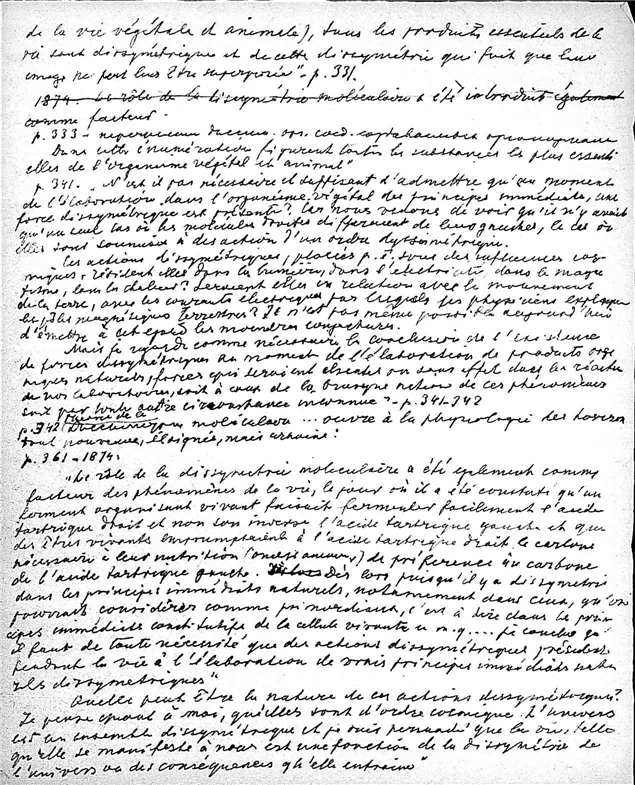 de la vie végétale et animale), tous les produits essentiels de la
vie sont dissymétriques et de cette dissymétrie qui fait que leur
image ne peut leur être superposée" - p. 331.
1874. Le rôle de la dissymétrie moléculaire a été introduit également
comme facteur
p. 333 -
Dans cette énumération figurent toutes les substances les plus essenti
elles de l'organisme végétal et animal"
p. 341. "N'est il pas nécessaire et suffisant d'admettre qu'au moment
de l'élaboration dans l'organisme végétal des principes immédiats, une
force dissymétrique est présente? Car nous venons de voir qu'il n'y avait
qu'un seul cas où les molécules droites différaient de leurs gauches, le cas où
elles sont soumises à des actions d'un ordre dyssimétrique.
Ces actions dissymétriques, placées p. ê. sous des influences cos
miques, résident elles dans la lumière, dans l'électricité, dans le magné
tisme, dans la chaleur? Seraient elles en relation avec le mouvement
de la terre, avec les courants électriques par lesquels les physiciens expliquent
les pôles magnétiques terrestres? Il n'est pas même possible aujourd'hui
d'émettre à cet égard les moindres conjectures.
Mais je regarde comme nécessaire la conclusion de l'existence
de forces dissymétriques au moment de l'élaboration de produits orga
niques naturels, forces qui seraient absentes ou sans effet dans les réactions
de nos laboratoires, soit à cause de la brusque action de ces phénomènes
soit par toute autre circonstance inconnue" - p. 341-342
p. 342 moléculaire ... ouvre à la physiologie des horizons
tout nouveaux, éloignés, mais
p. 361 - 1874:
"Le rôle de la dissymétrie moléculaire a été également comme
facteur des phénomènes de la vie, le jour où il a été constaté qu'un
ferment organisé vivant faisait fermenter facilement l'acide
tartrique droit et non son inverse l'acide tartrique gauche et que
des êtres vivants empruntaient à l'acide tartrique droit le carbone
nécessaire à leur nutrition de préférence au carbone
de l'acide tartrique gauche. Dès lors puisqu'il y a dissymétrie
dans les principes immédiats naturels, notamment dans ceux, qu'on
pourrait considérer comme primordiaux, c'est à dire dans les prin
cipes immédiats constitutifs de la cellule vivante .... je conclus qu'
il faut de toute nécessité que des actions dissymétriques président
pendant la vie à l'élaboration de vrais principes immédiats natu
rels dissymétriques"
Quelle peut être la nature de ces actions dissymétriques?
Je pense quant à moi, qu'elles sont d'ordre cosmique. L'univers
est un ensemble dissymétrique et je suis persuadé que la vie, telle
qu'elle se manifeste à nous est une fonction de la dissymétrie de
l'univers ou des conséquences qu'elle entraîne"